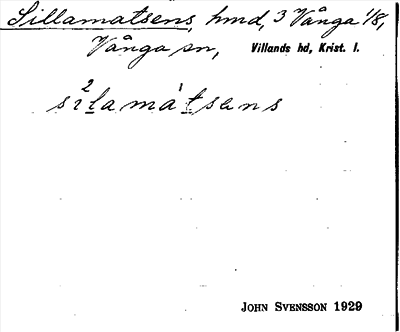 Sillamatsens, hmd, 3 Vånga 1/8,
Vånga sn, Villands hd, Krist. l.
2 1
silamatsens
JOHN SVENSSON 1929